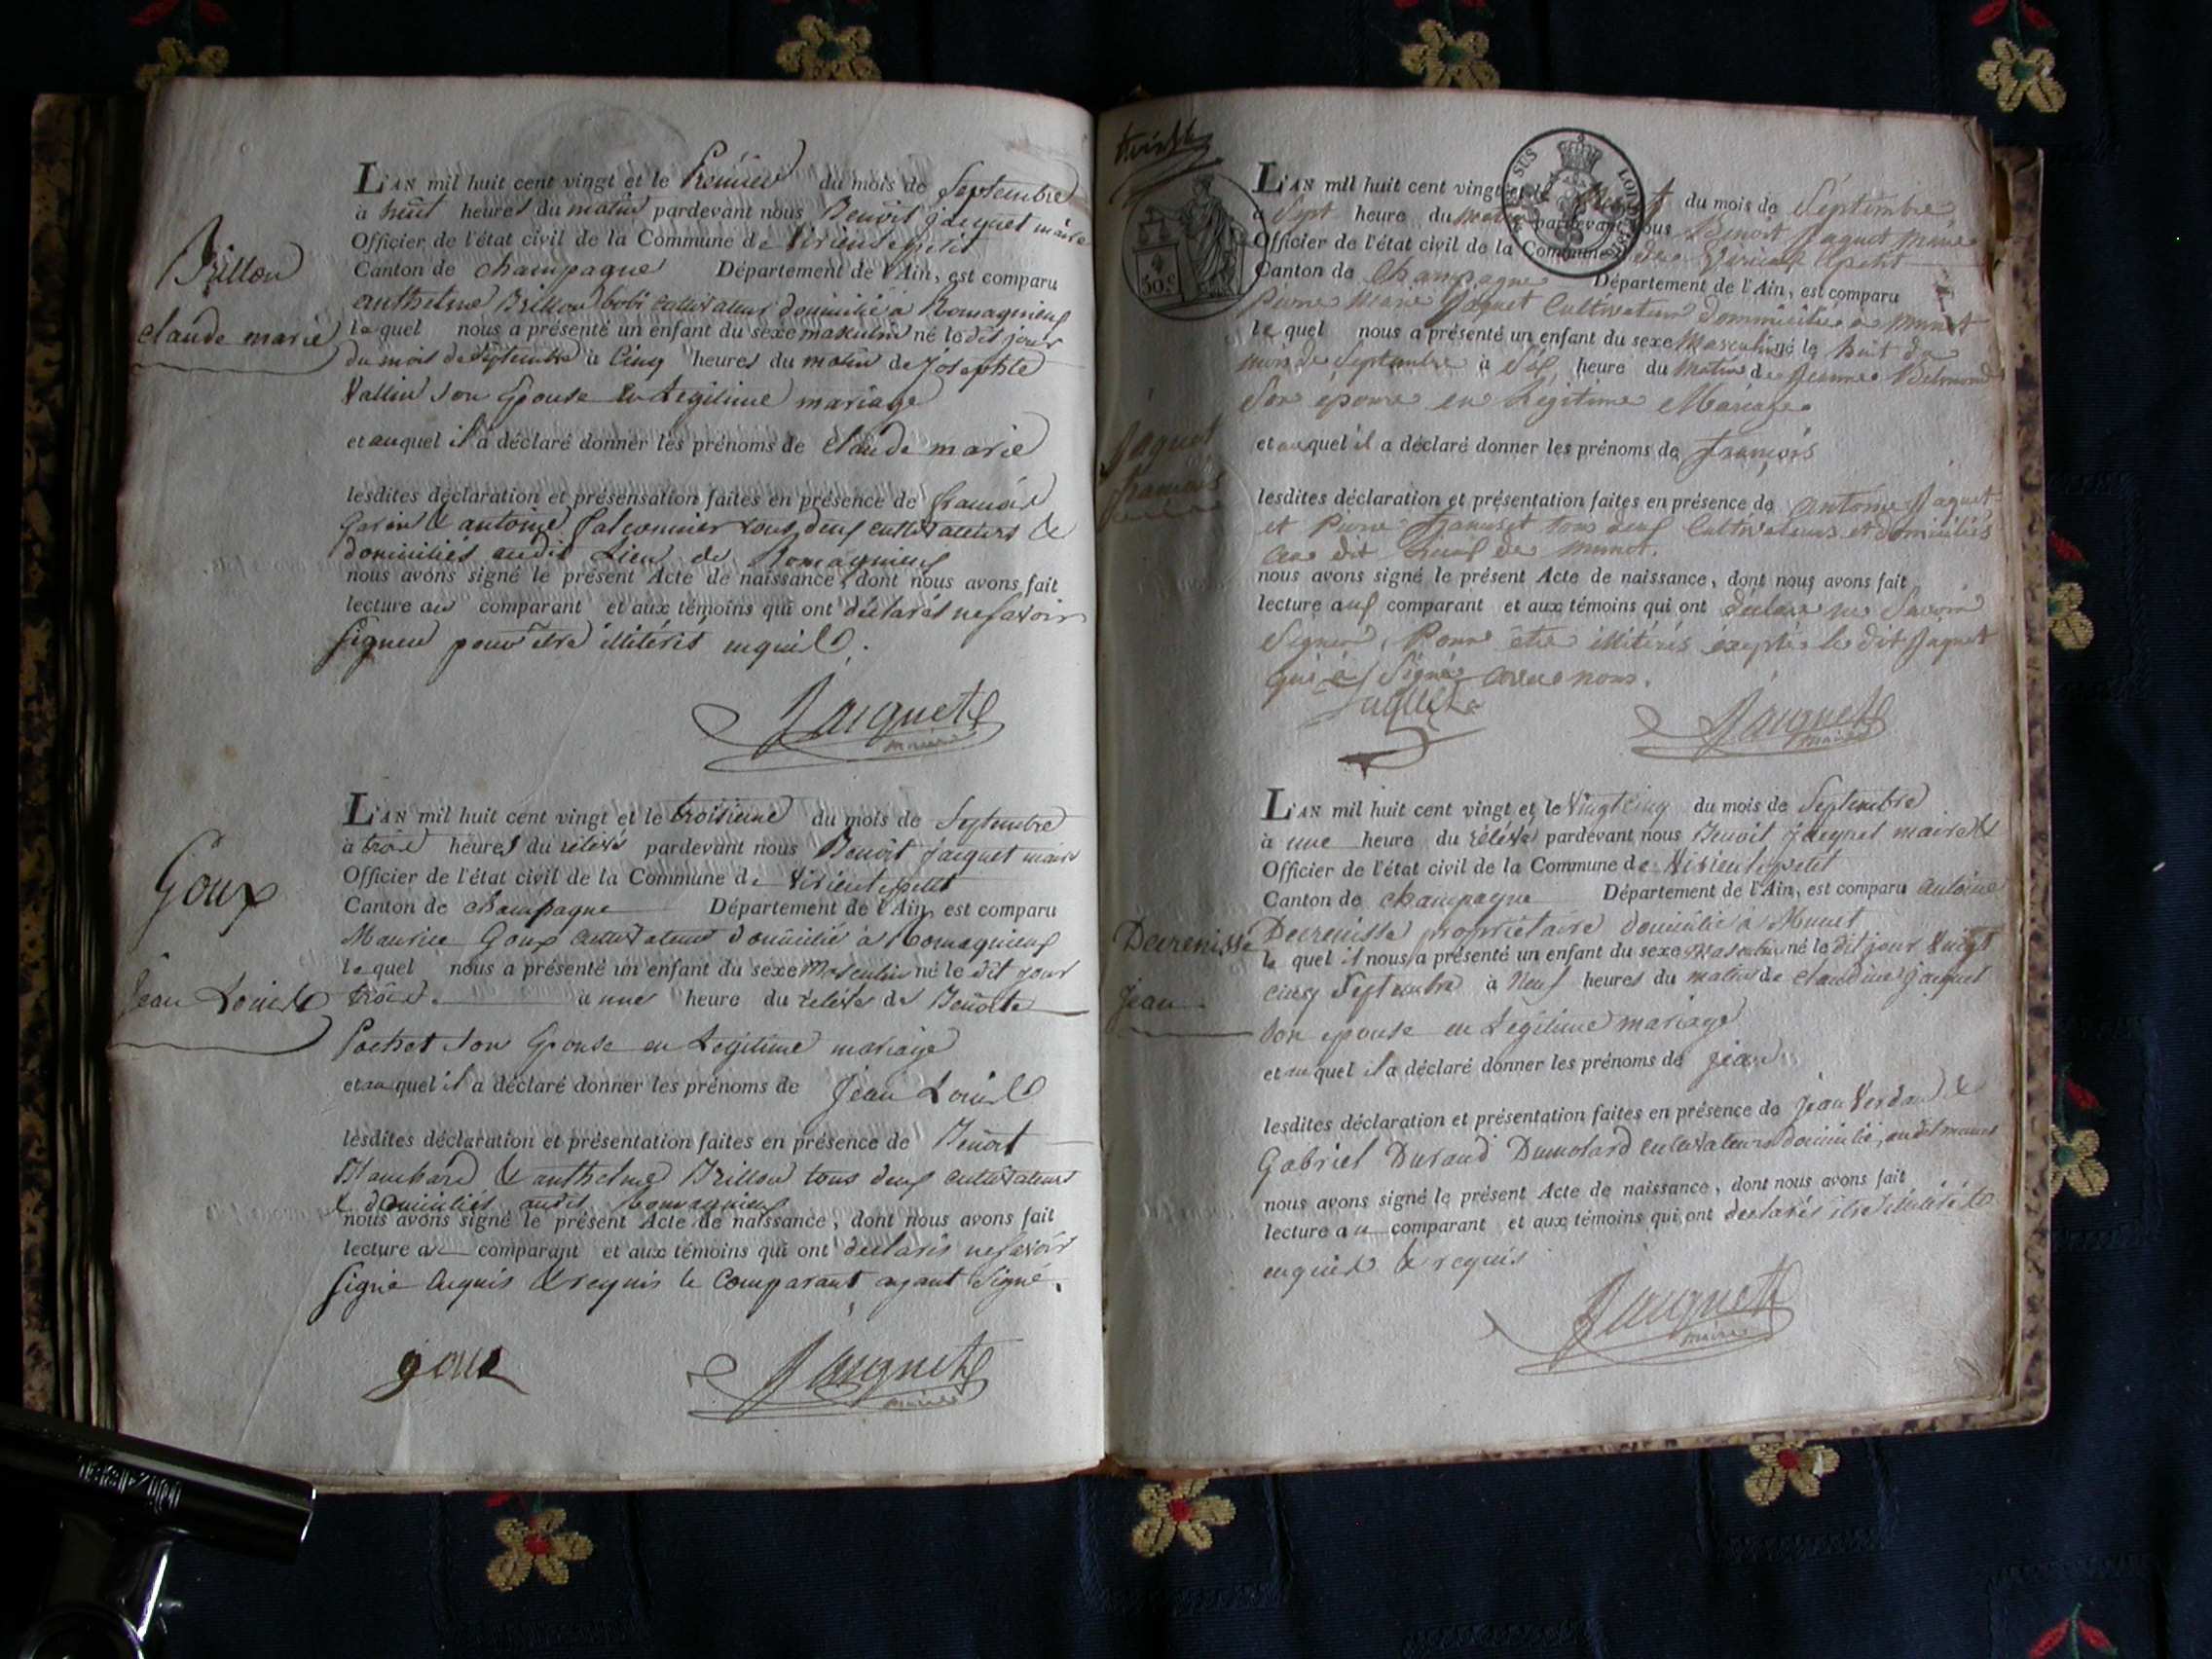 L'AN mil huit cent vingt et le Premier du mois de Septembre
à huit heures du matin pardevant nous Benoit jacquet maire
Officier de l'état civil de la Commune de Virieu le petit
Canton de champagne Département de l'Ain, est comparu
anthelme Brillon cultivateur domicilié à Romagnieux
lequel nous a présenté un enfant du sexe masculin né le dit jour
du mois de Septembre à Cinq heures du matin de josephte
Vallin son Epouse en Legitime mariage
et auquel il a déclaré donner les prénoms de claude marie
lesdites déclaration et présensation faites en présence de francois
& antoine falconnier tous deux cultivateurs &
domiciliés audit Lieu de Romagnieux
nous avons signé le présent Acte de naissance, dont nous avons fait
lecture au comparant et aux témoins qui ont déclarés ne savoir
signer pour être illitérés enquis.
Brillon
claude marie
Jacquet
maire
L'AN mil huit cent vingt et le troisieme du mois de Septembre
à trois heures du relevé pardevant nous Benoit jacquet maire
Officier de l'état civil de la Commune de Virieu le petit
Canton de champagne Département de l'Ain, est comparu
Maurice Goux cultivateur domicilié à Romagnieux
lequel nous a présenté un enfant du sexe Masculin né le dit jour
trois à une heure du relevé de Benoite
Pochet son Epouse en Legitime mariage
et auquel il a déclaré donner les prénoms de Jean Louis
lesdites déclaration et présentation faites en présence de Benoit
& anthelme Brillon tous deux cultivateurs
& domiciliés audit Romagnieux
nous avons signé le présent Acte de naissance, dont nous avons fait
lecture au comparant et aux témoins qui ont declarés ne savoir
signé enquis & requis le Comparant ayant signé.
Goux
Jean Louis
goux
Jacquet
maire
50 c
L'AN mil huit cent vingt et le du mois de Septembre
à Sept heure du matin pardevant nous Benoit Jaquet Maire
Officier de l'état civil de la Commune de Virieux le petit
Canton de Champagne Département de l'Ain, est comparu
Pierre Marie Jaquet Cultivateur Dommicilié à Munet
lequel nous a présenté un enfant du sexe Masculin né le huit du
mois de Septembre à Six heure du Matin de Jeanne
Son épouse en Légitime Mariage
et auquel il a déclaré donner les prénoms de françois
lesdites déclaration et présentation faites en présence de antoine Jaquet
et Pierre tous deux Cultivateurs et domiciliés
au dit Lieux de Munet.
nous avons signé le présent Acte de naissance, dont nous avons fait
lecture aux comparant et aux témoins qui ont déclaré ne Savoir
Signer, Pour etre illitérés exepté le dit Jaquet
qui a Signé avec nous.
Jaquet
françois
Jaquet
Jacquet
maire
L'AN mil huit cent vingt et le Vingt cinq du mois de Septembre
à une heure du relevé pardevant nous Benoit jacquet maire &
Officier de l'état civil de la Commune de Virieu le petit
Canton de champagne Département de l'Ain, est comparu antoine
Decrenisse propriétaire domicilié à Munet
lequel il nous a présenté un enfant du sexe masculin né le dit jour Vingt
cinq Septembre à Neuf heures du matin de claudine jacquet
son epouse en Legitime mariage
et auquel il a déclaré donner les prénoms de jean
lesdites déclaration et présentation faites en présence de jean Verdan &
Gabriel Durand Dumolard cultivateurs domicilié, audit munet
nous avons signé le présent Acte de naissance, dont nous avons fait
lecture au comparant et aux témoins qui ont declarés etre illitérés
enquis & requis
Decrenisse
jean
Jacquet
maire